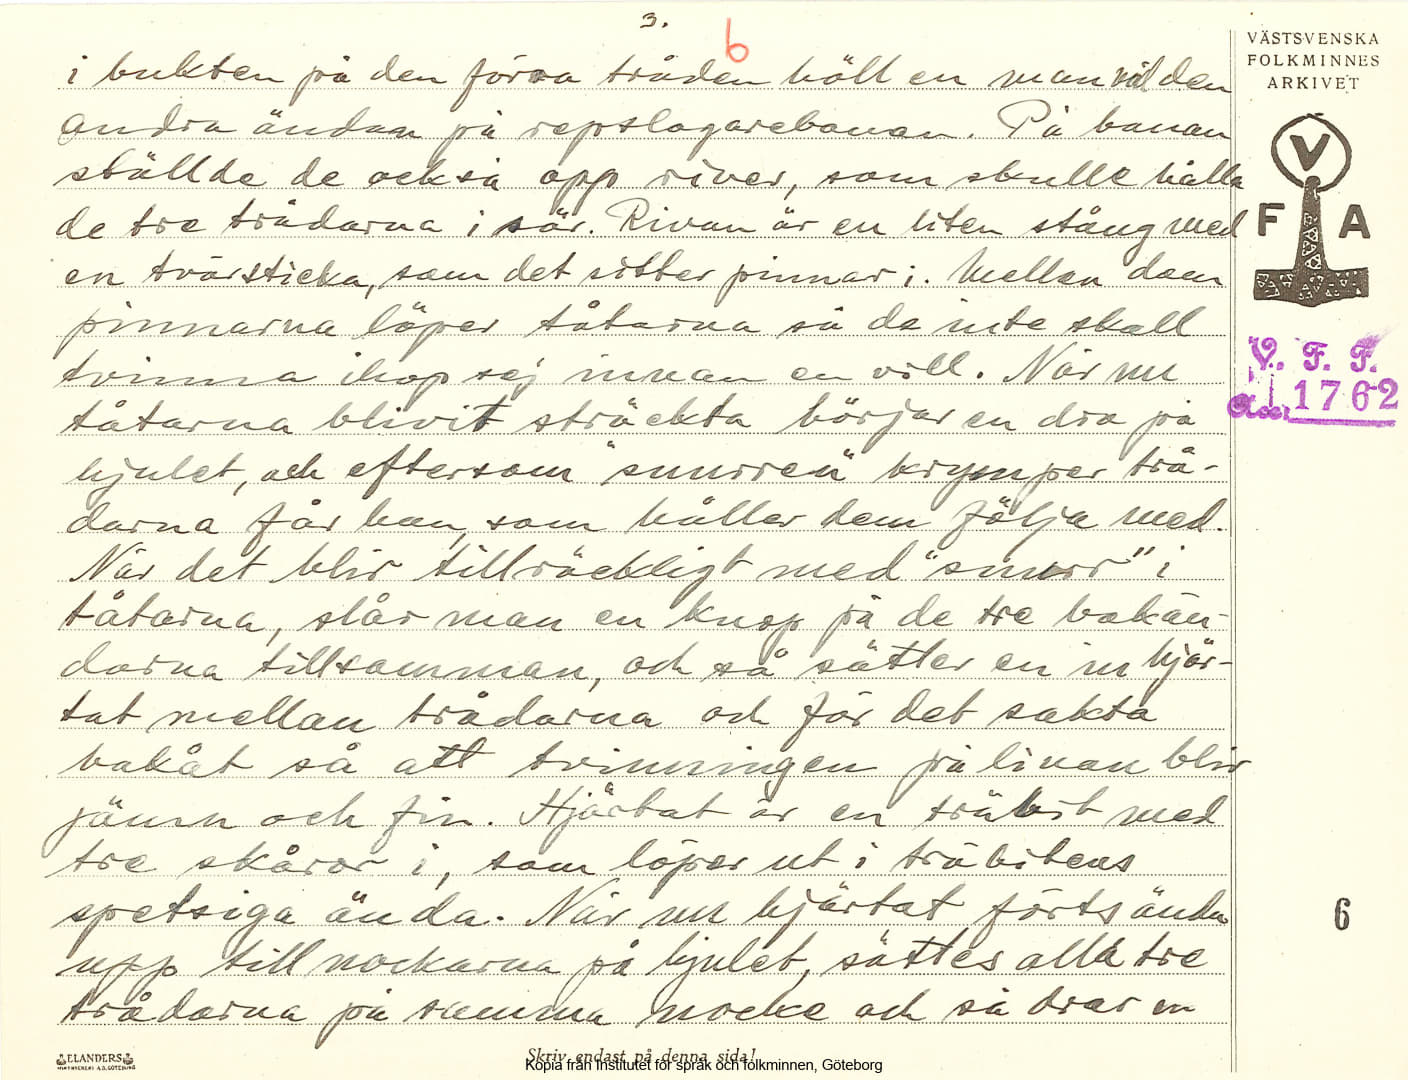 3.
6
i bukten på den förra tråden höll en man vid den
andra ändan på repslagarebanan. På banan
ställde de också opp river, som skulle hålla
de tre trådarna i sär. Rivan är en liten stång med
en tvärsticka, som det sitter pinnar i. Mellan dom
pinnarna löper tåtarna så de inte skall
tvinna ihop sej innan en vill. När nu
tåtarna blivit sträckta börjar en dra på
hjulet, och eftersom "snurren" krymper trå-
darna får han, som håller dem följa med.
När det blir tillräckligt med "snurr" i
tåtarna, slår man en knop på de tre bakän-
darna tillsamman, och så sätter en in hjär-
tat mellan trådarna och för det sakta
bakåt så att tvinningen på linan blir
jämn och fin. Hjärtat är en träbit med
tre skåror i, som löper ut i träbitens
spetsiga ända. När nu hjärtat förts ända
upp till nockarna på hjulet, sättes alla tre
trådarna på samma nocke och så drar en
VÄSTSVENSKA
FOLKMINNES
ARKIVET
V
F A
V. F. F.
Acc. 1762
6
ELANDERS
Skriv endast på denna sida!
Kopia från Institutet för språk och folkminnen, Göteborg